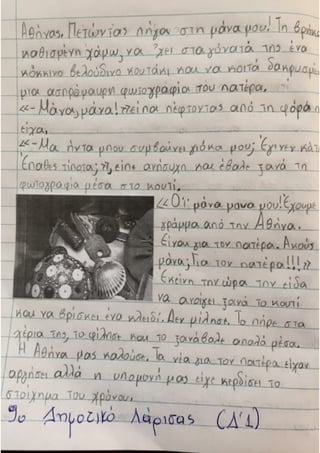 Αθήνας. Πετώντας πήγα στη μάνα μου! Τη βρήκα
καθισμένη χάμω, να 'χει στα γόνατά της ένα
κόκκινο βελούδινο κουτάκι και να κοιτά δακρυσμέ
μια ασπρόμαυρη φωτογραφία του πατέρα.
«-Μάνα, μάνα!» είπα πέφτοντας από τη φόρα π
είχα.
«-Μα ήντα μπου συμβαίνει γιόκα μου; Έγινεν κάτ
Έπαθες τίποτας;», είπε ανήσυχη και έβαλε ξανά τη
φωτογραφία μέσα στο κουτί.
«Όϊ μάνα μανα μου! Έχουμε
γράμμα από την Αθήνα.
Είναι για τον πατέρα. Ακούς
μάνα; Για τον πατέρα!!!»
Εκείνη την ώρα την είδα
να ανοίγει ξανά το κουτί
και να βρίσκει ένα κλειδί. Δεν μίλησε. Το πήρε στα
χέρια της, το φίλησε και το ξανάβαλε απαλά μέσα.
Η Αθήνα μας καλούσε. Τα νέα για τον πατέρα είχαν
αργήσει αλλά η υπομονή μας είχε κερδίσει το
στοίχημα του χρόνου.
9ο Δημοτικό Λάρισας (Δ'1)